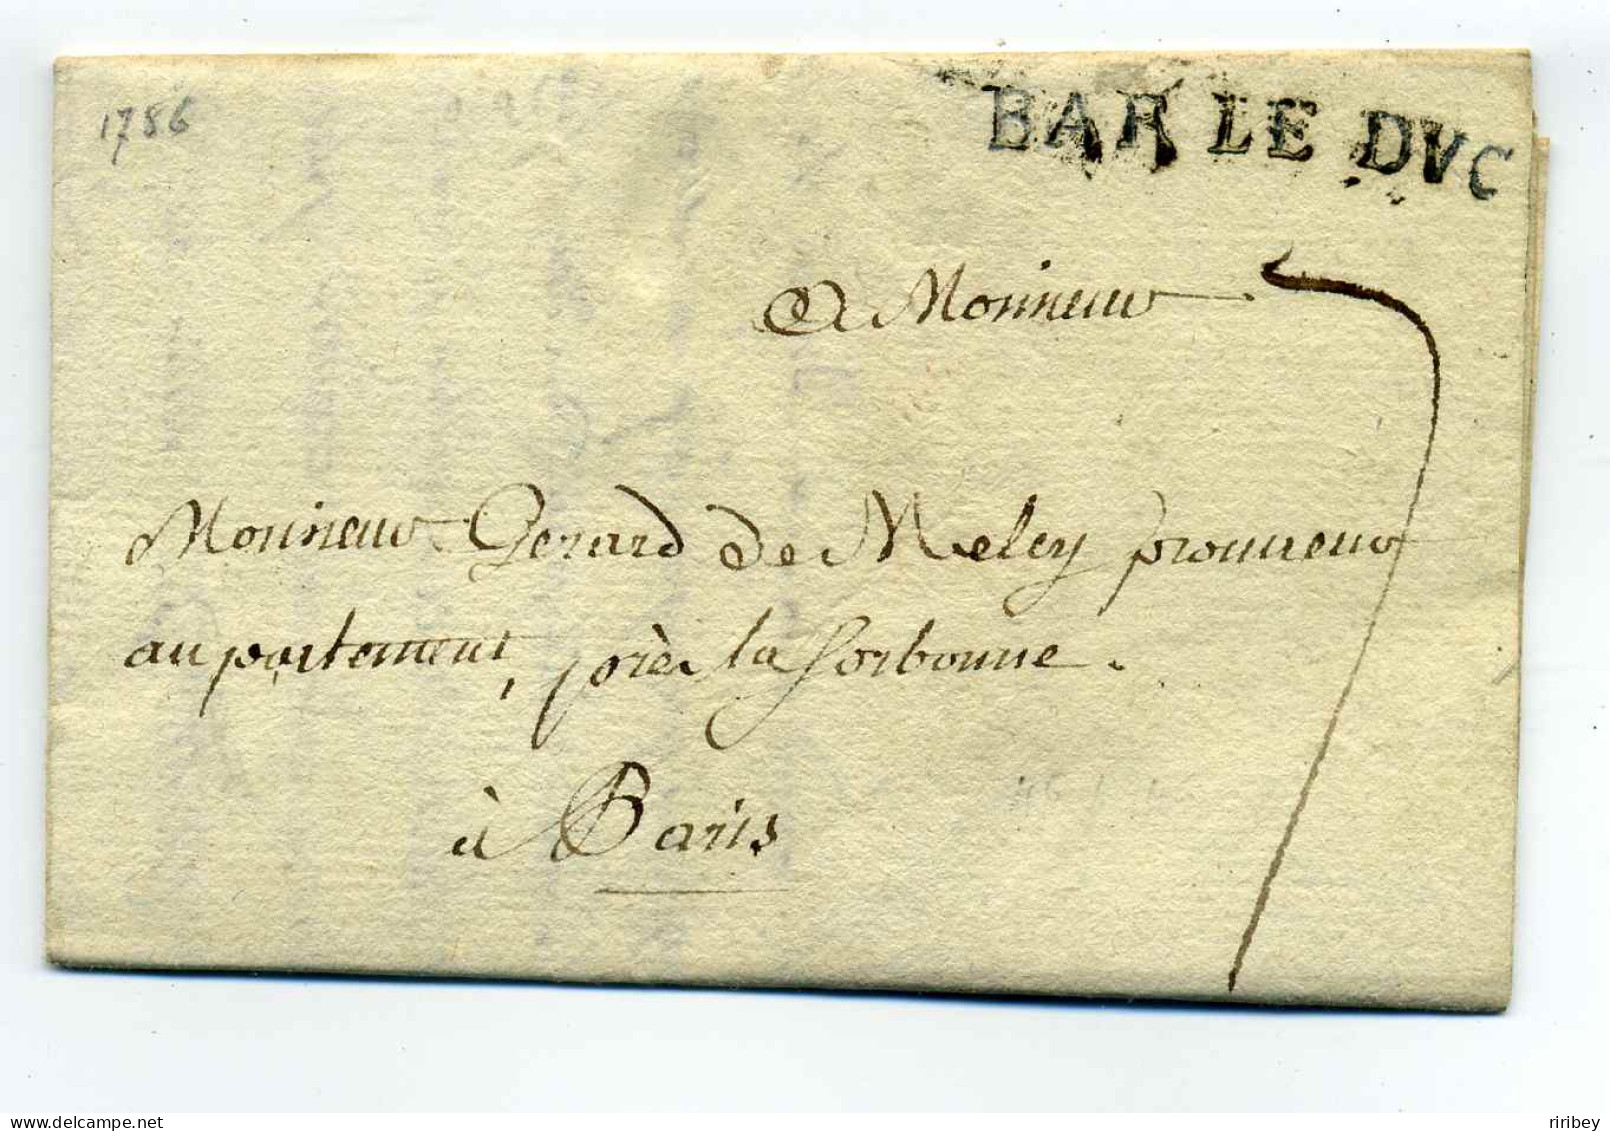 1786
BAR LE DVC
A Monsieur
7
Monsieur Gerard de Melcy procureur
au partement, près la Sorbonne.
à Paris
riribey